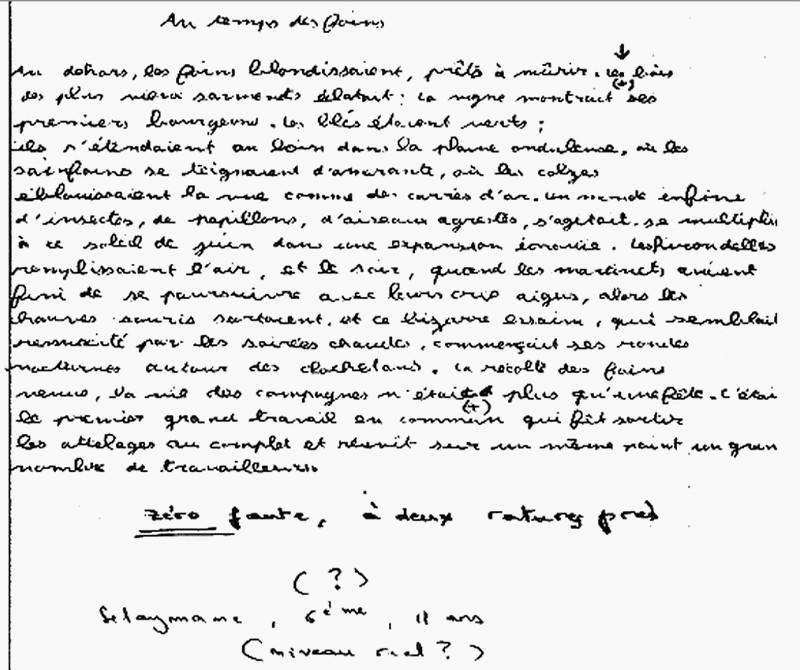 Au temps des foins
Au dehors, les foins blondissaient, prêts à mûrir. Le bois
(+)
des plus vieux sarments éclatait : la vigne montrait ses
premiers bourgeons. Les blés étaient verts ;
ils s'étendaient au loin dans la plaine onduleuse, où les
sainfoins se teignaient d'amarante, où les colzas
éblouissaient la vue comme des carrés d'or. Un monde infini
d'insectes, de papillons, d'oiseaux agrestes, s'agitait. se multiplia
à ce soleil de juin dans une expansion inouïe. Les hirondelles
remplissaient l'air, et le soir, quand les martinets avaient
fini de se poursuivre avec leurs cris aigus, alors les
chauves souris sortaient, et ce bizarre essaim, qui semblait
ressuscité par les soirées chaudes, commençait ses rondes
nocturnes autour des clochetons. La récolte des foins
venue, la vie des campagnes n'était plus qu'une fête. C'étai
(+)
le premier grand travail en commun qui fît sortir
les attelages au complet et réunit sur un même point un gran
nombre de travailleurs.
zéro faute, à deux ratures près
(?)
Seleymane, 6ème, 11 ans
(niveau réel ?)